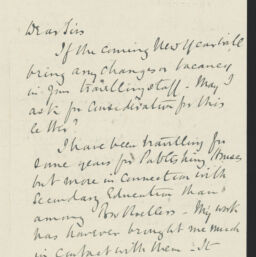 Dear Sirs
If the coming New Year
bring any changes or vacancy
in your travelling staff - May I
ask for consideration for this
letter?
I have been travelling for
some years for Publishing Houses
but more in connection with
Secondary Education than
among Booksellers - My work
has however brought me much
in contact with them - It